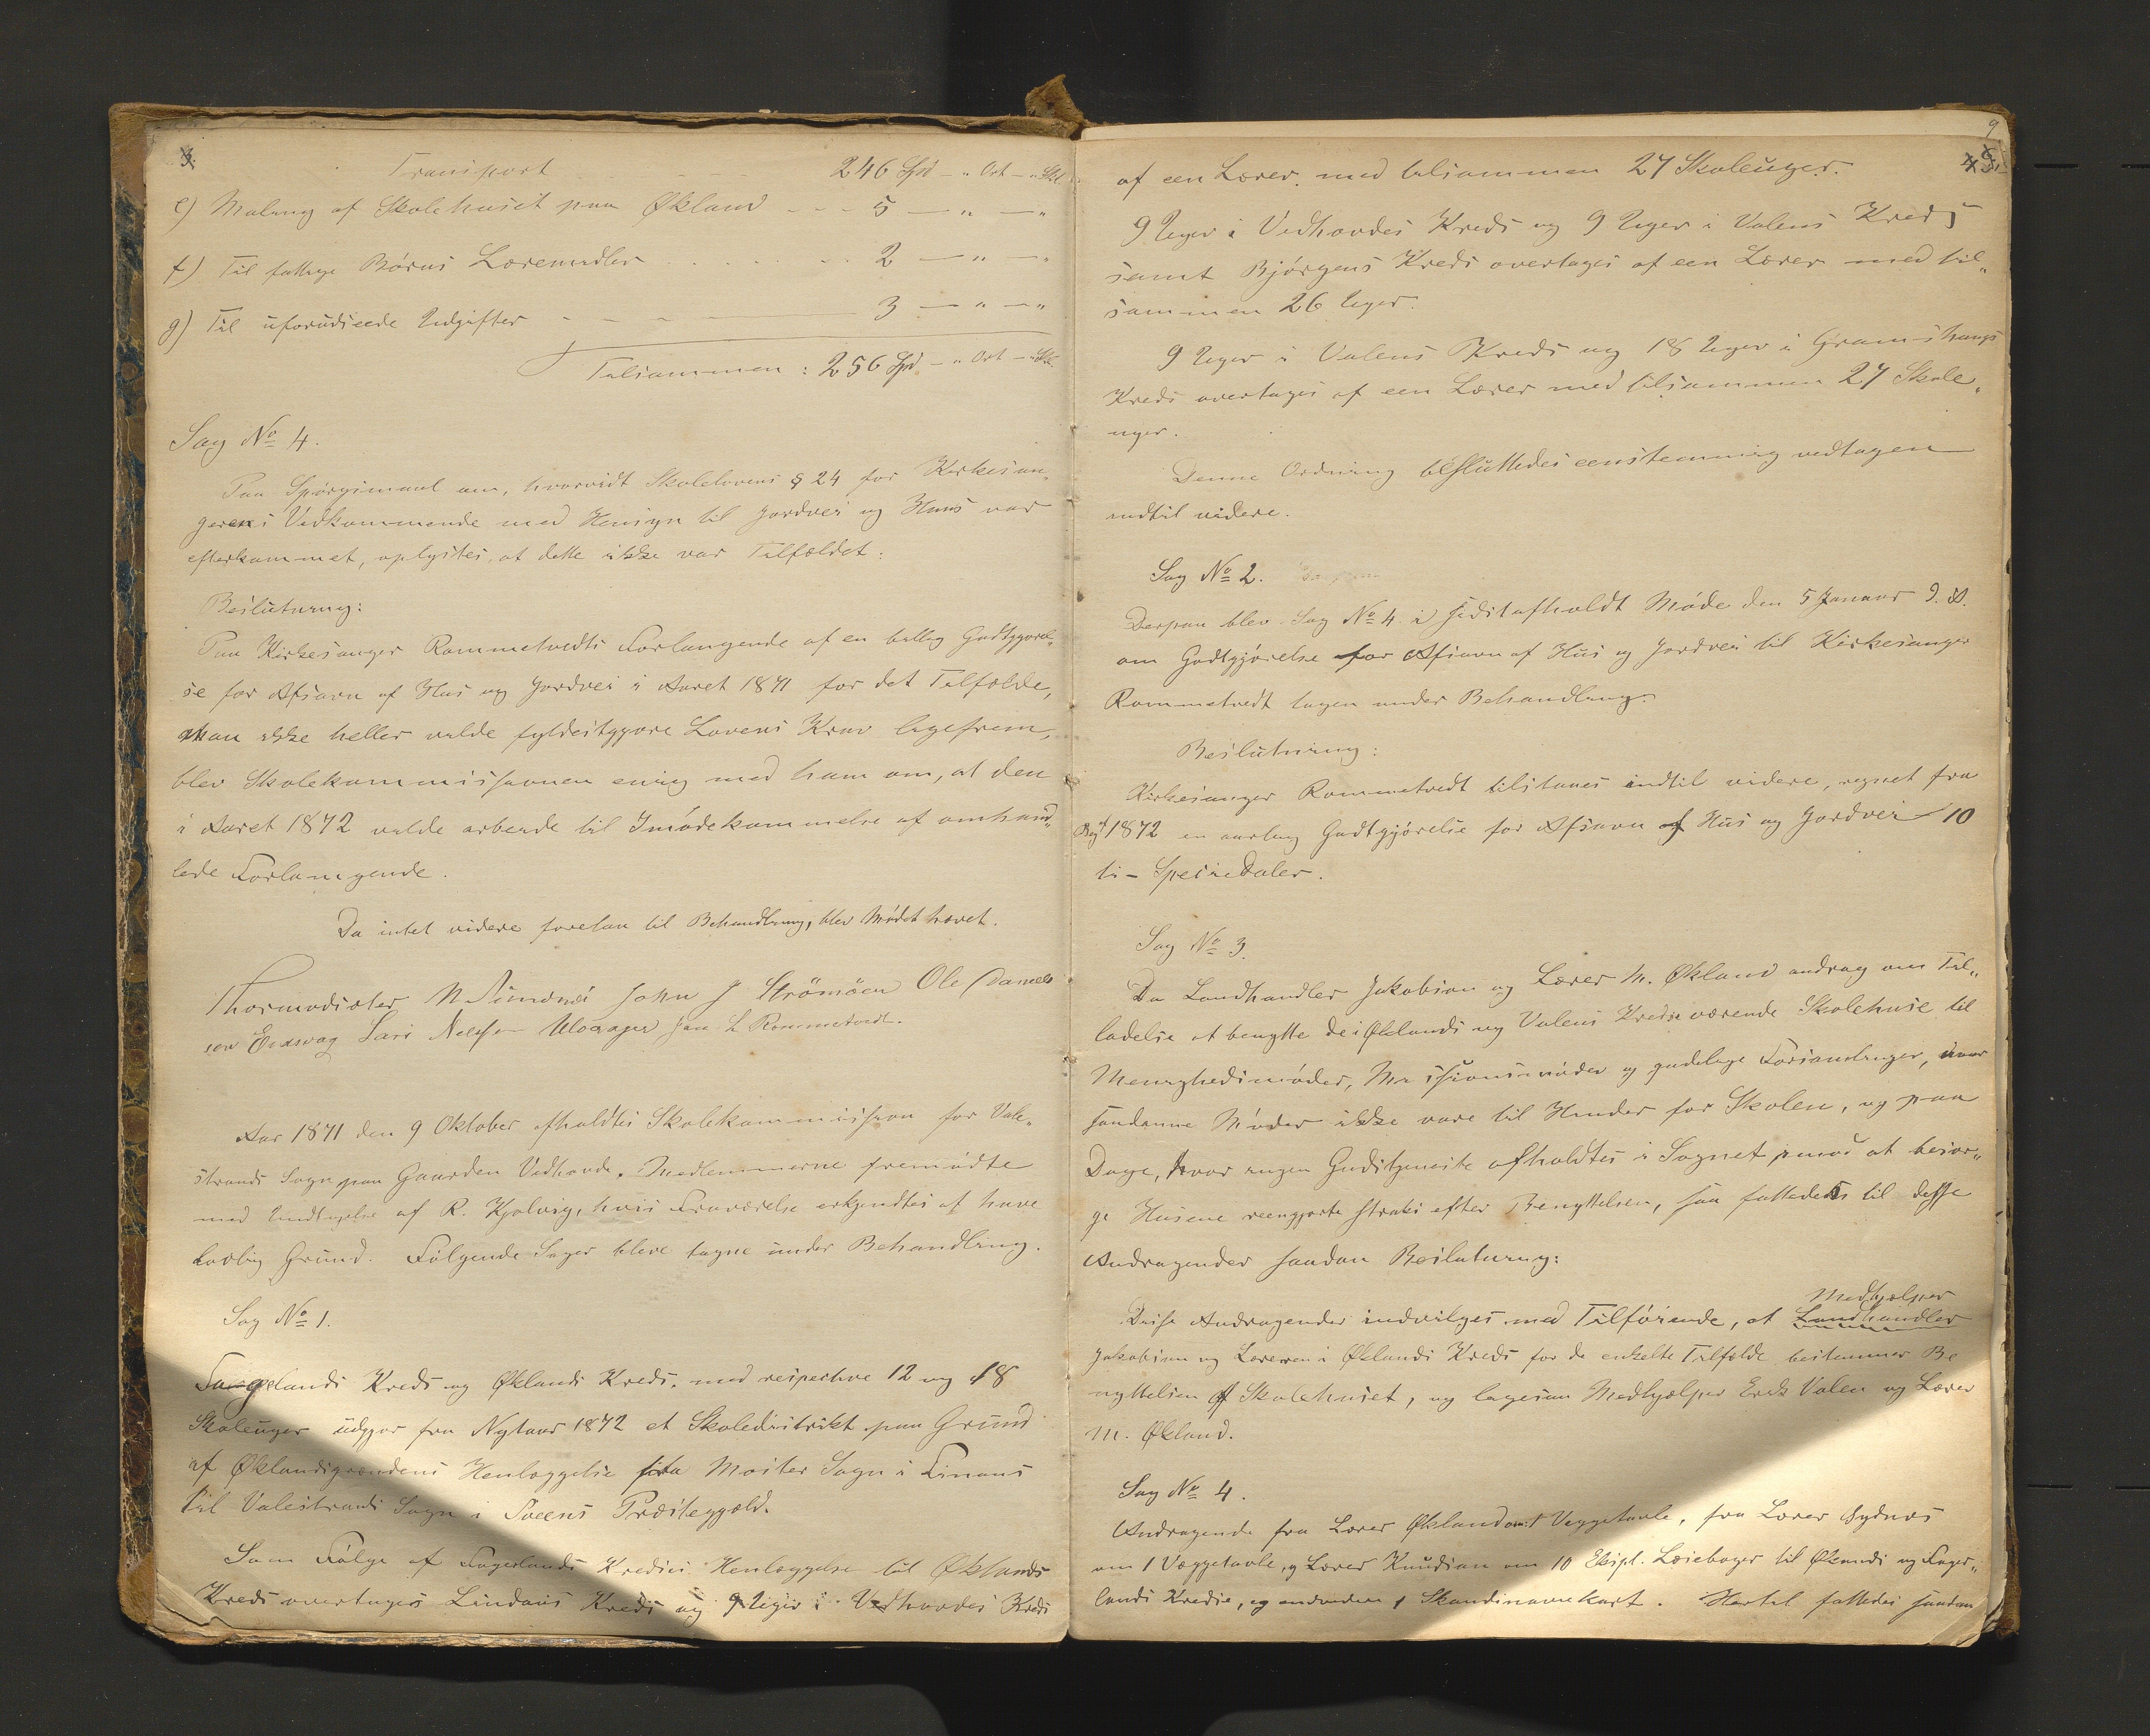 3.
Transport - - - 246 Spd - " Ort - " Skl
e) Maling af Skolehuset paa Økland - - - 5 — " — "
f) Til fattige Børns Læremidler . . . . . . 2 — " — "
g) Til uforudseede Udgifter - - - - 3 — " — "
Tilsammen: 256 Spd - " Ort - " Skl.
Sag No 4.
Paa Spørgsmaal om, hvorvidt Skolelovens § 24 for Kirkesan„
gerens Vedkommende med Hensyn til Jordvei og Huus var
efterkommet, oplystes, at dette ikke var Tilfældet.
Beslutning:
Paa Kirkesanger Rommetvedts Forlangende af en billig Godtgjørel„
se for Afsavn af Hus og Jordvei i Aaret 1871 for det Tilfælde,
man ikke heller vilde fyldestgjøre Lovens Krav ligefrem,
blev Skolekommissionen enig med ham om, at den
i Aaret 1872 vilde arbeide til Imødekommelse af omhand„
lede Forlangende.
Da intet videre forelaa til Behandling, blev Mødet hævet.
Thormodsæter N Simonsen John J Strömöen Ole Daniels
sen Eidsvag Lars Nilsson Ulvaager Jan L Rommetvedt.
Aar 1871 den 9 Oktober afholdtes Skolekommission for Vale„
strands Sogn paa Gaarden Vedhovde. Medlemmerne fremmødte
med Undtagelse af R. Kjolvig, hvis Fraværelse erkjendtes at have
Lovlig Grund. Følgende Sager bleve tagne under Behandling.
Sag No 1.
Fagerlands Kreds og Øklands Kreds, med respektive 12 og 18
Skoleuger udgjør fra Nytaar 1872 et Skoledistrikt paa Grund
af Øklandsgrændens Henlæggelse fra Moster Sogn i Finaas
til Valestrands Sogn i Sveens Præstegjæld.
Som Følge af Fagerlands Kredses Henlæggelse til Øklands
Kreds overtages Lindøens Kreds og 9 Uger i Vedhovdes Kreds
9
af een Lærer med tilsammen 27 Skoleuger.
9 Uger i Vedhovdes Kreds og 9 Uger i Valens Kreds
samt Bjørgens Kreds overtages af een Lærer med til„
sammen 26 Uger.
9 Uger i Valens Kreds og 18 Uger i Gramshaugs
Kreds overtages af een Lærer med tilsammen 27 Skole„
uger.
Denne Ordning besluttedes eenstemmig vedtagen
indtil videre.
Sag No 2.
Derpaa blev Sag No 4 i sidst afholdt Møde den 5 Januar d. A.
om Godtgjørelse for Afsavn af Hus og Jordvei til Kirkesanger
Rommetvedt tagen under Behandling.
Beslutning:
Kirkesanger Rommetvedt tilstaaes indtil videre, regnet fra
1872 en aarlig Godtgjørelse for Afsavn af Hus og Jordvei - 10
ti - Speciedaler.
Sag No 3.
Da Landhandler Jakobson og Lærer M. Økland androg om Til„
ladelse at benytte de i Øklands og Valens Kredse værende Skolehuse til
Menighedsmøder, Missionsmøder og gudelige Forsamlinger, naar
saadanne Møder ikke vare til Hinder for Skolen, og paa
Dage, hvor ingen Gudstjeneste afholdtes i Sognet, imod at besør„
ge Husene reengjorte straks efter Benyttelsen, saa fattedes til disse
Andragender saadan Beslutning:
Disse Andragender indvilges med Tilføiende, at Landhandler Medhjælper
Jakobson og Læreren i Øklands Kreds for de enkelte Tilfælde bestemmer Be
nyttelsen af Skolehuset, og ligesaa Medhjælper Erik Valen og Lærer
M. Økland.
Sag No 4.
Andragende fra Lærer Økland om 1 Veggetavle, fra Lærer Sydnes
om 1 Væggetavle, og Lærer Knudsen om 10 Ekspl. Læsebøger til Øklands og Fager„
lands Kredse, og endvidere 1 Skandinaviekart. Hertil fattedes saadan